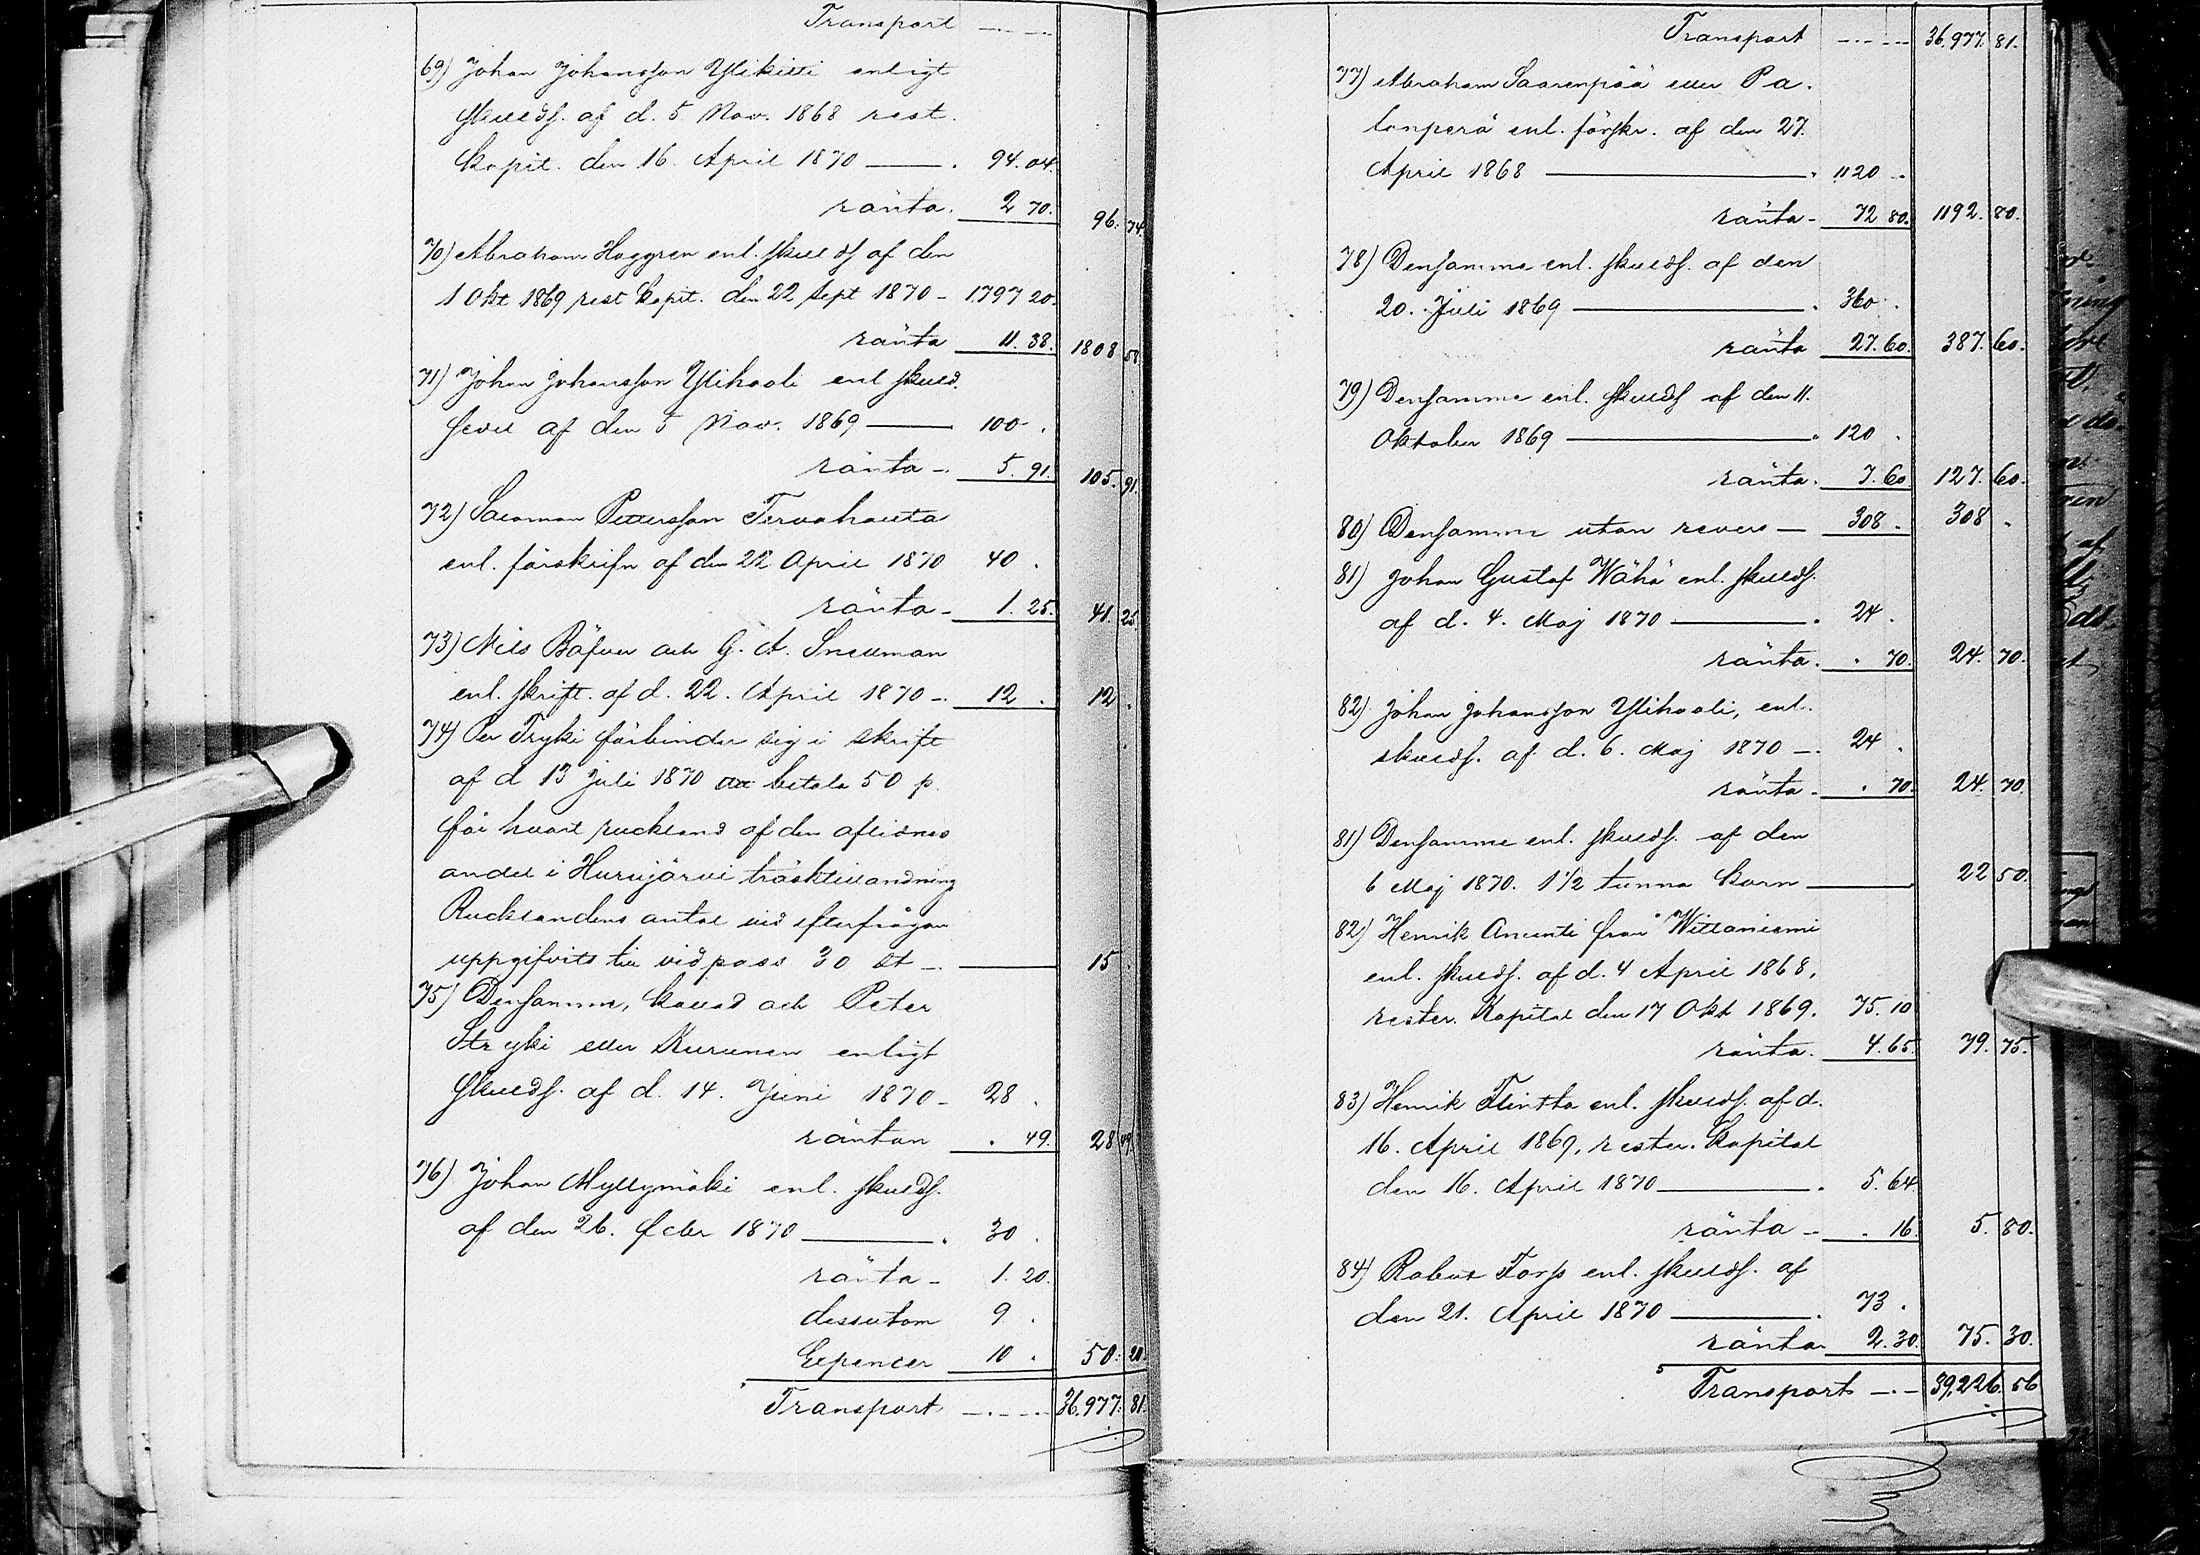 Transport
69) Johan Johansson Ylikitti enligt
skulds. af d. 5 Nov. 1868 rest.
Kapit. den 16. April 1870 94.04.
ränta. 2 70. 96. 74.
70) Abraham Haggren enl. skulds af den
1 Okt 1869 rest Kapit. den 22 Sept 1870 - 1797 20.
ränta 11. 38. 1808 58
71) Johan Johansson Ylihooli enl skuld.
sedel af den 5 Nov. 1869 100.
ränta - 5. 91. 105. 91.
72) Salomon Pettersson Tervahauta
enl. förskrifn af den 22 April 1870 40.
ränta - 1. 25. 41. 25
73) Nils Böfver och G. A. Snellman
enl. skrift. af d. 22. April 1870 - 12. 12.
74) Per Tryki förbinder sig i skrift
af d 13 Juli 1870 att betala 50 p.
för hvart ruckland af den aflidnes
andel i Hurujärvi träsktillandning
Rucklandens antal vid efterfrågan
uppgifvits till vid pass 30 st - 15.
75) Densamme, Kalld och Peter
Stryki eller Kurunen enligt
skulds. af d. 14. Juni 1870 - 28.
räntan . 49. 28 49
76) Johan Myllymäki enl. skulds.
af den 26. Feber 1870 30.
ränta - 1. 20.
dessutom 9.
Expenser 10. 50. 20.
Transport 36,977. 81.
Transport 36,977. 81.
77) Abraham Saarenpää eller Pa-
lonperä enl. förskr. af den 27.
April 1868 1120.
ränta - 72 80. 1192. 80.
78) Densamme enl. skulds. af den
20. Juli 1869 360.
ränta 27. 60. 387. 60.
79) Densamme enl. skulds af den 11.
Oktober 1869 120.
ränta. 7. 60 127. 60.
80) Densamme utan revers - 308. 308.
81) Johan Gustaf Wähä enl. skulds.
af d. 4. Maj 1870 24.
ränta. . 70. 24. 70.
82) Johan Johansson Ylihooli, enl.
skulds. af d. 6. Maj 1870 - 24.
ränta - . 70. 24. 70.
81) Densamme enl. skulds. af den
6 Maj 1870. 1 1/2 tunna Korn 22 50.
82) Henrik Anunti från Wittaniemi
enl. skulds. af d. 4 April 1868,
rester. Kapital den 17 Okt 1869. 75. 10
ränta. 4. 65. 79. 75.
83) Henrik Flintta enl. skulds. af d.
16. April 1869, rester. Kapital
den 16. April 1870 5. 64
ränta - . 16. 5. 80.
84) Robert Torp enl. skulds. af
den 21. April 1870 73.
ränta 2. 30. 75. 30.
Transport 39,226. 56